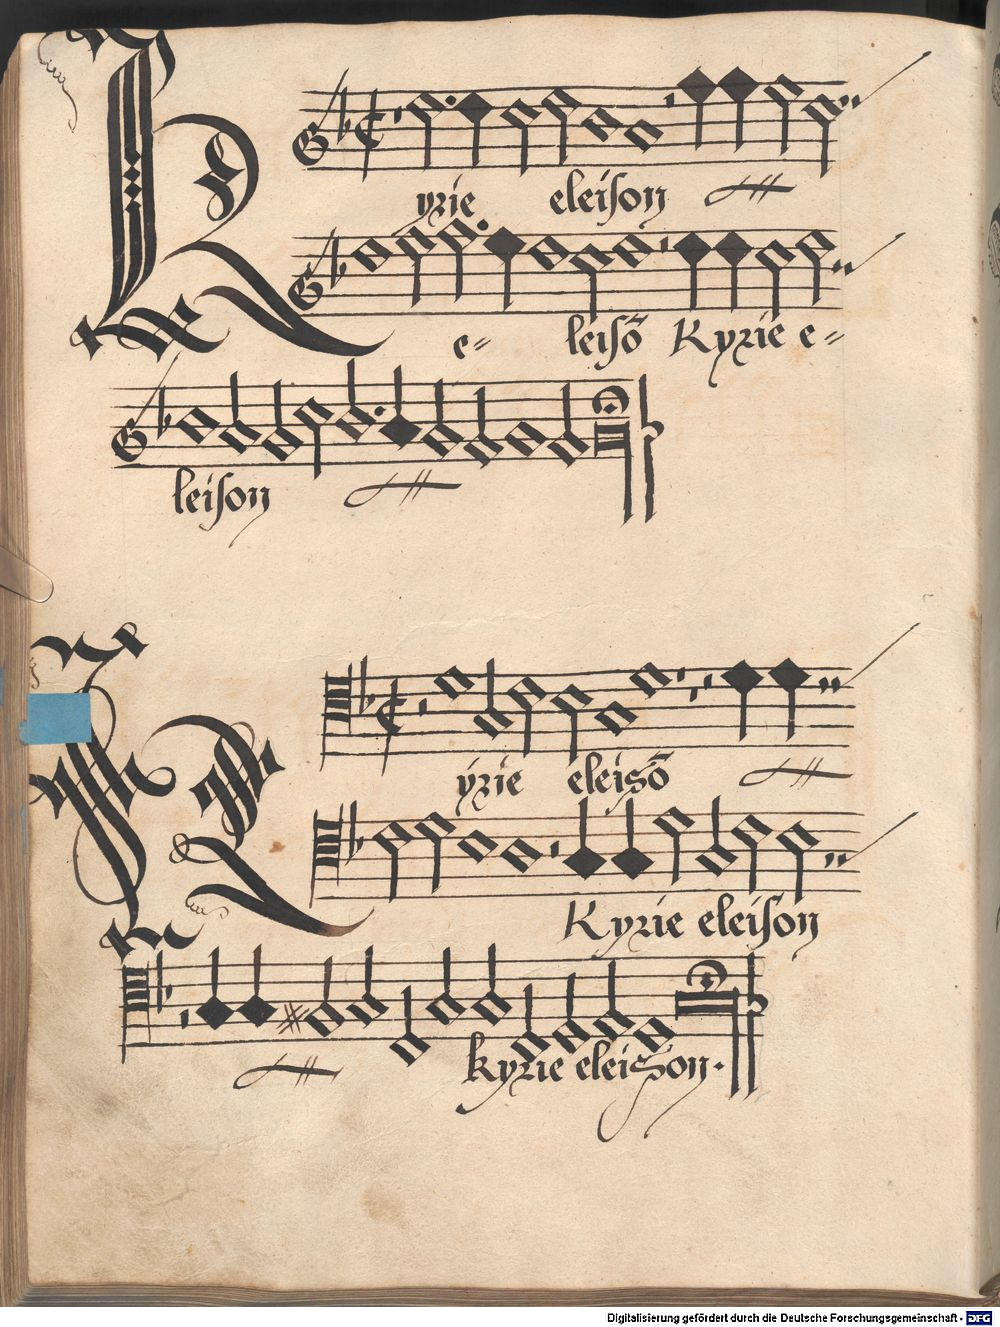 Kyrie eleison
e= leisō Kyrie e=
leison
Kyrie eleisō
Kyrie eleison
kyrie eleison.
Digitalisierung gefördert durch die Deutsche Forschungsgemeinschaft - DFG